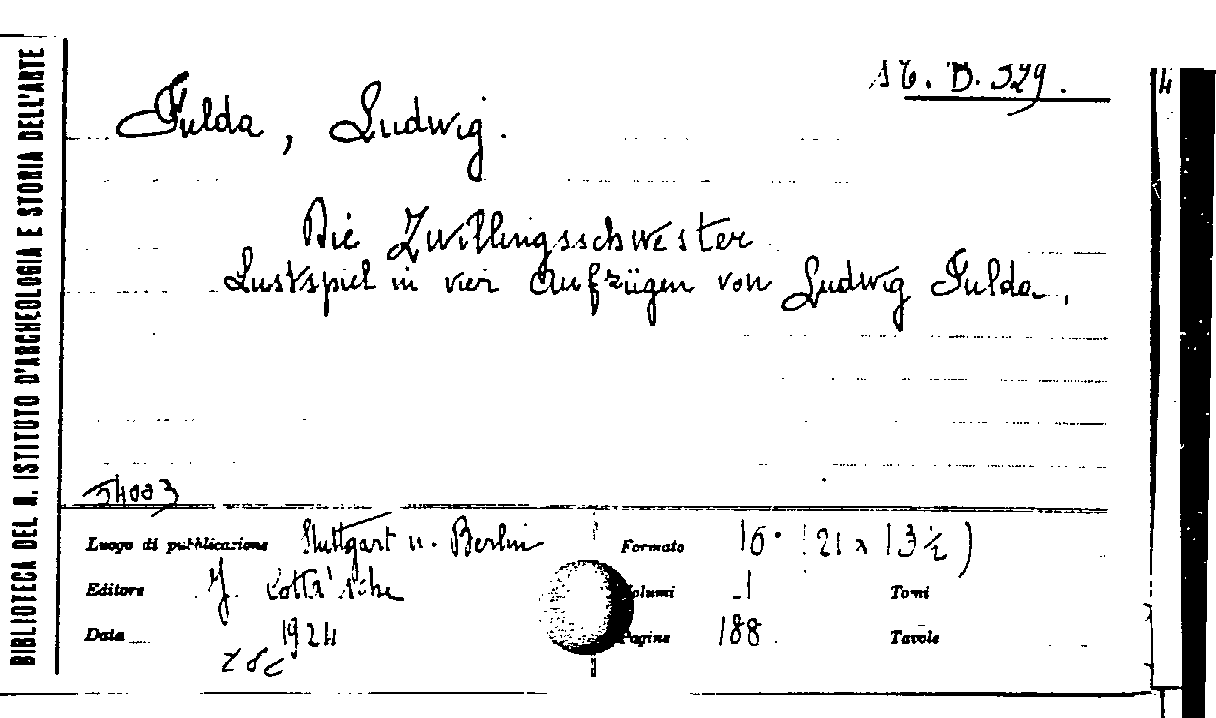 BIBLIOTECA DEL R. ISTITUTO D'ARCHEOLOGIA E STORIA DELL'ARTE
B. 329.
Fulda, Ludwig.
Die Zwillingsschwester
Lustspiel in vier Aufzügen von Ludwig Fulda.
54003
Luogo di pubblicazione Stuttgart u. Berlin
Formato 16° (21 x 13½)
Editore J. Cotta'sche
Volumi 1 Tomi
Data 1924
Pagine 188 Tavole